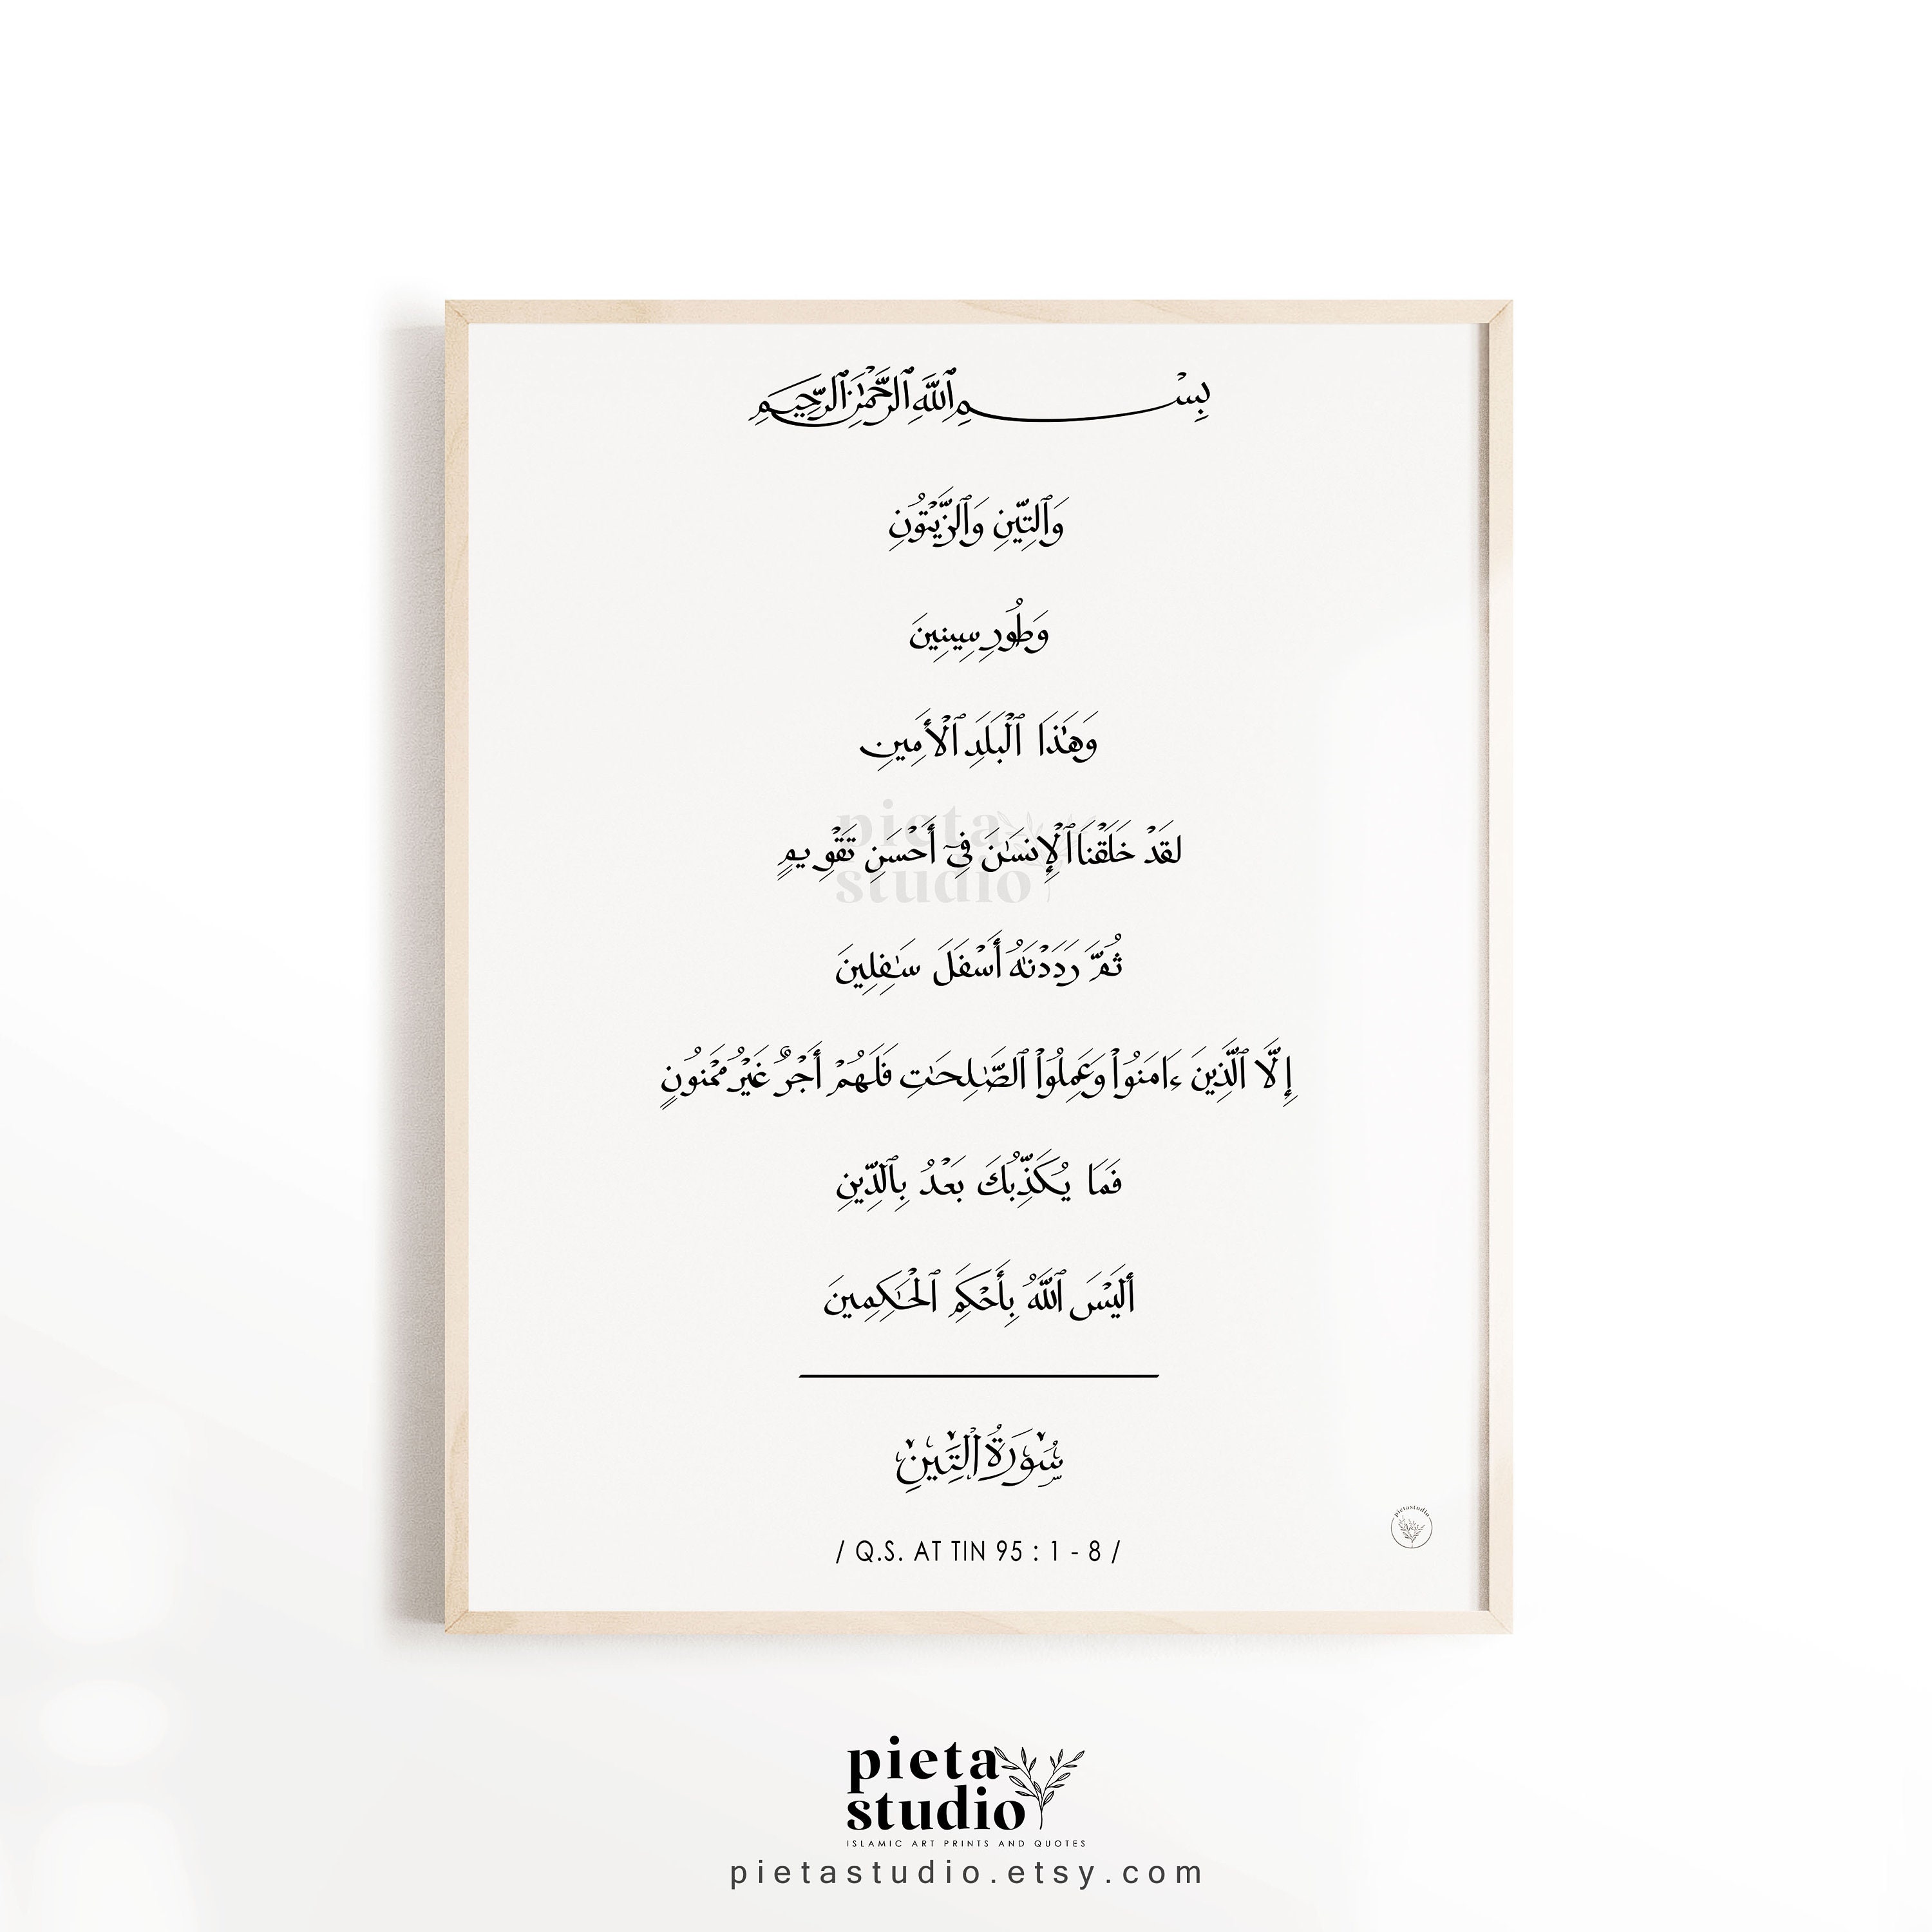 بِسْمِ ٱللَّهِ ٱلرَّحْمَٰنِ ٱلرَّحِيمِ
وَٱلتِّينِ وَٱلزَّيْتُونِ
وَطُورِ سِينِينَ
وَهَٰذَا ٱلْبَلَدِ ٱلْأَمِينِ
لَقَدْ خَلَقْنَا ٱلْإِنسَٰنَ فِىٓ أَحْسَنِ تَقْوِيمٍ
pieta
studio
ثُمَّ رَدَدْنَٰهُ أَسْفَلَ سَٰفِلِينَ
إِلَّا ٱلَّذِينَ ءَامَنُوا۟ وَعَمِلُوا۟ ٱلصَّٰلِحَٰتِ فَلَهُمْ أَجْرٌ غَيْرُ مَمْنُونٍ
فَمَا يُكَذِّبُكَ بَعْدُ بِٱلدِّينِ
أَلَيْسَ ٱللَّهُ بِأَحْكَمِ ٱلْحَٰكِمِينَ
سُوْرَةُ ٱلتِّينِ
pietastudio
/ Q.S. AT TIN 95 : 1 - 8 /
pieta
studio
ISLAMIC ART PRINTS AND QUOTES
pietastudio.etsy.com